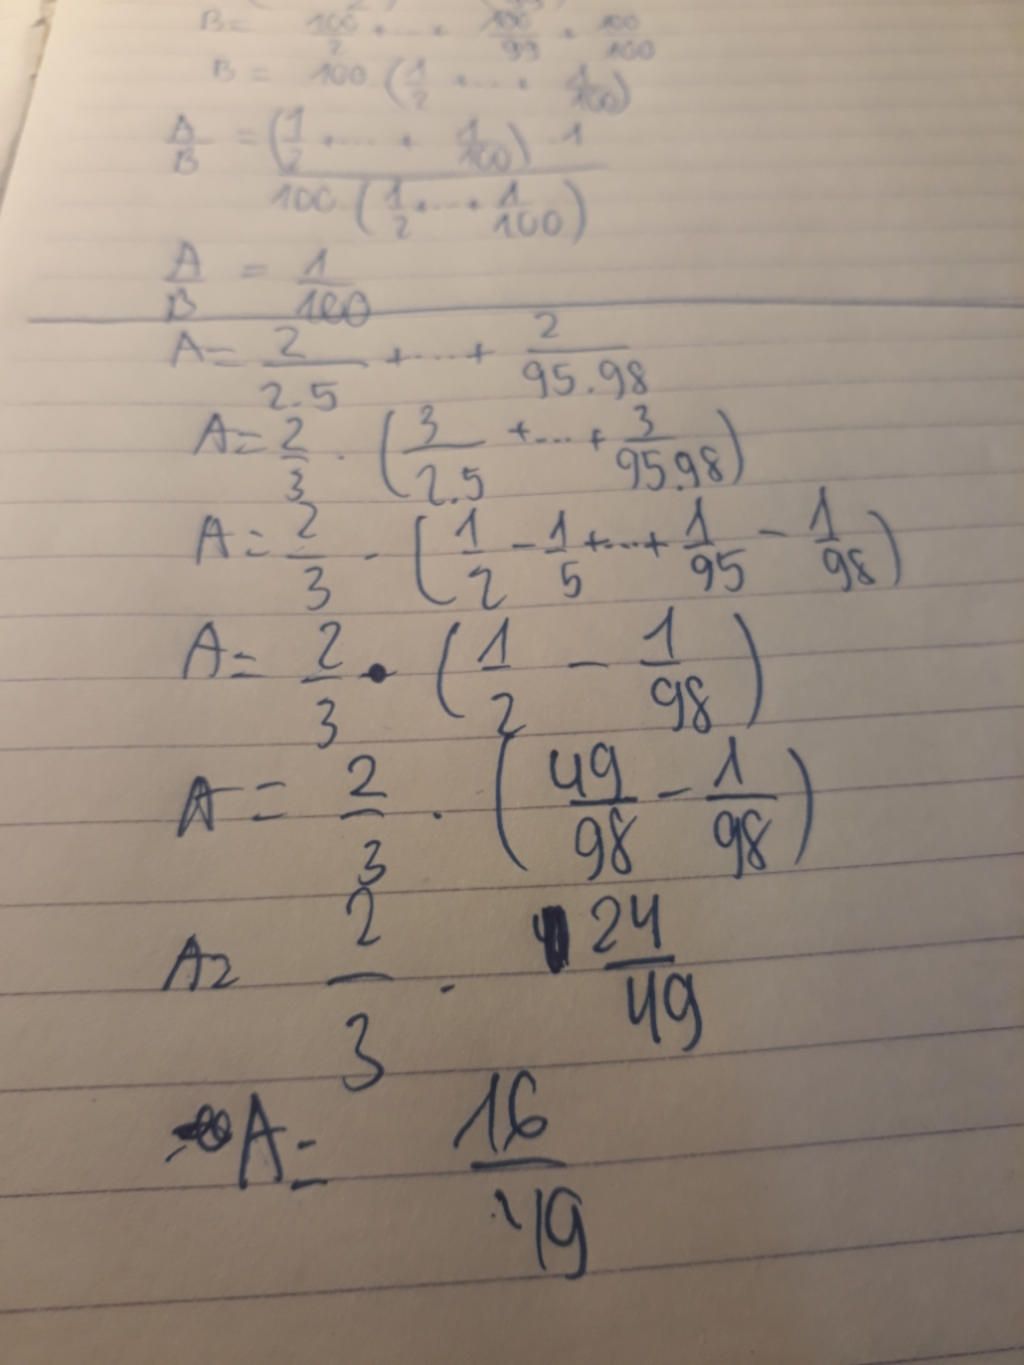 B = 100/2 + ... + 100/99 + 100/100
B = 100 (1/2 + ... + 1/100)
A/B = (1/2 + ... + 1/100) · 1 / 100 · (1/2 + ... + 1/100)
A/B = 1/100
A = 2/2.5 + ... + 2/95.98
A = 2/3 . (3/2.5 + ... + 3/95.98)
A = 2/3 . (1/2 - 1/5 + ... + 1/95 - 1/98)
A = 2/3 . (1/2 - 1/98)
A = 2/3 . (49/98 - 1/98)
A = 2/3 . 24/49
A = 16/49